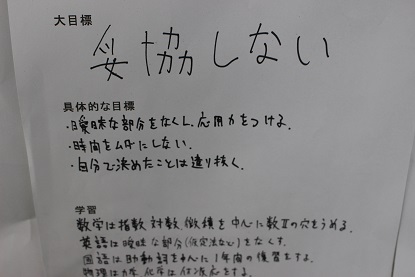 大目標
妥協しない
具体的な目標
・曖昧な部分をなくし、応用力をつける。
・時間をムダにしない。
・自分で決めたことは遣り抜く。
学習
数学は指数、対数、微積を中心に数Ⅱの穴をうめる。
英語は曖昧な部分(仮定法など)をなくす。
国語は助動詞を中心に1年間の復習をする。
物理は力学、化学は
をする。